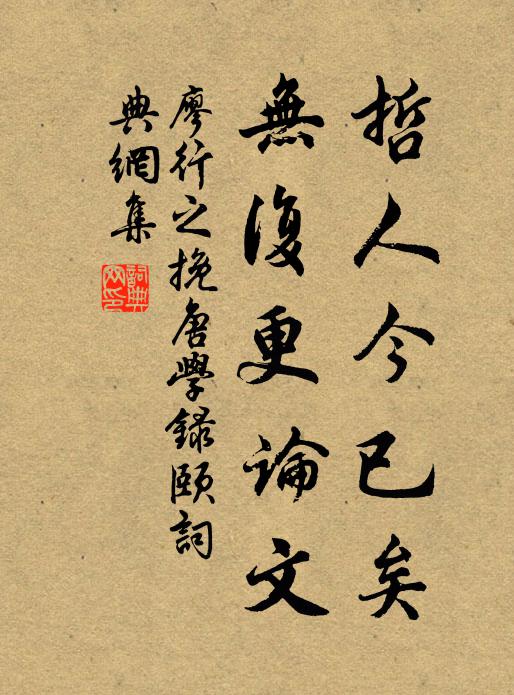 哲人今已矣
無復更論文
廖行之挽唐學録頤詞
典網集
詞典
网印